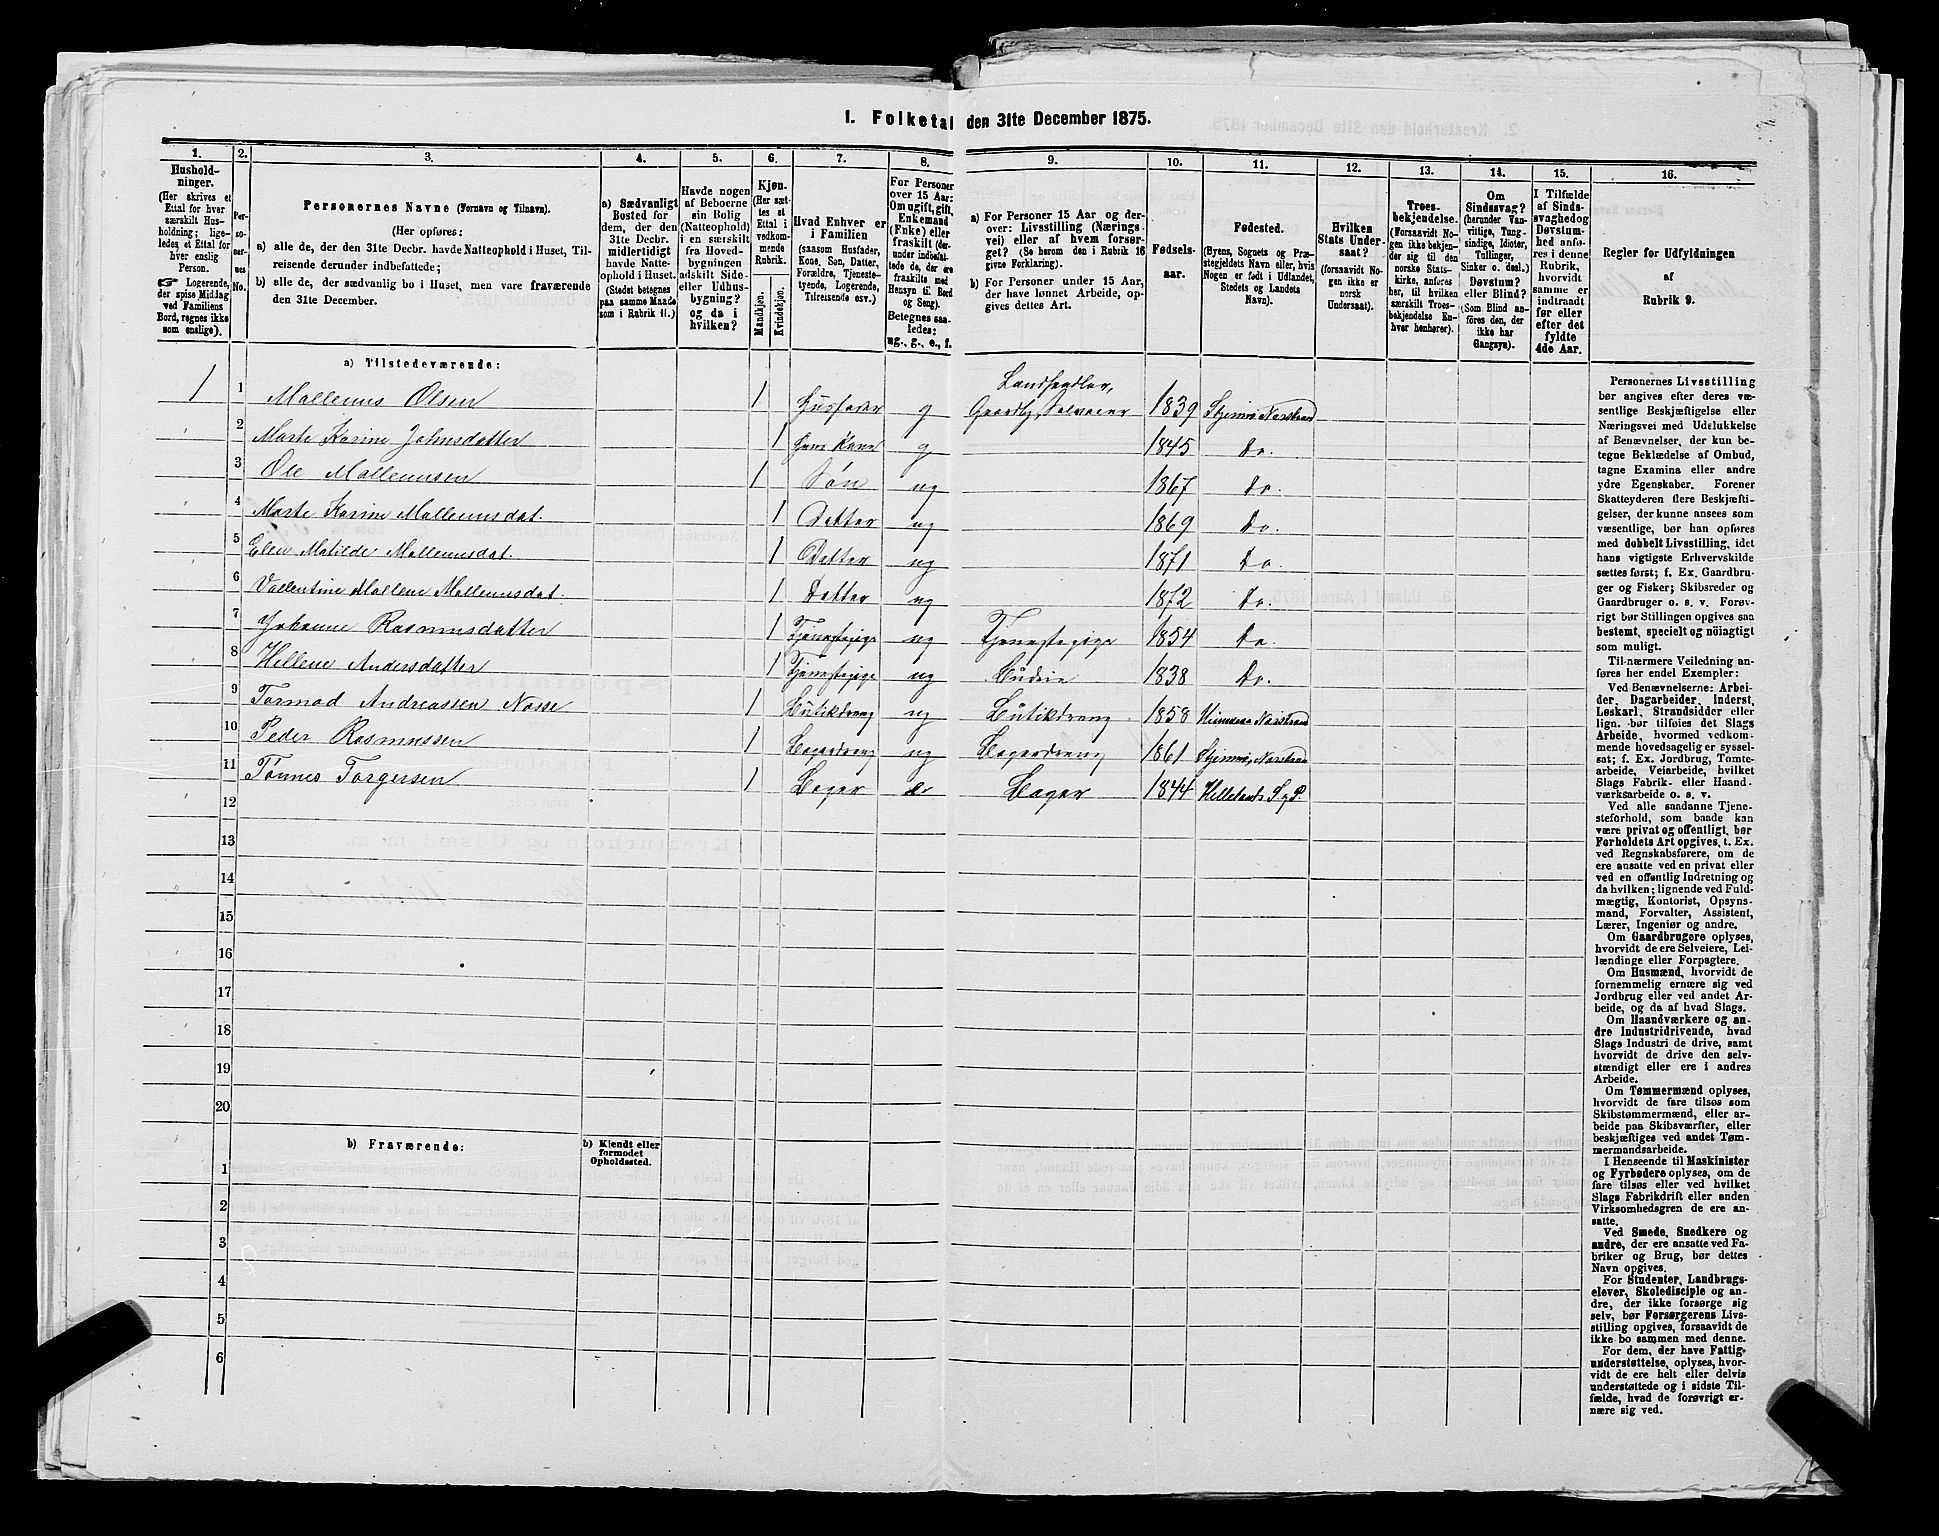 1. Folketal den 31te December 1875.
1.
Hushold-
ninger.
(Her skrives et
Ettal for hver
særskilt Hus-
holdning; lige-
ledes et Ettal for
hver enslig
Person.
☞ Logerende,
der spise Middag
ved Familiens
Bord, regnes ikke
som enslige).
2.
Per-
so-
ner-
nes
No.
3.
Personernes Navne (Fornavn og Tilnavn).
(Her opføres:
a) alle de, der den 31te Decbr. havde Natteophold i Huset, Til-
reisende derunder indbefattede;
b) alle de, der sædvanlig bo i Huset, men vare fraværende
den 31te December.
4.
a) Sædvanligt
Bosted for
dem, der den
31te Decbr.
midlertidigt
havde Natte-
ophold i Huset.
(Stedet betegnes
paa samme Maade
som i Rubrik 11.)
5.
Havde nogen
af Beboerne
sin Bolig
(Natteophold)
i en særskilt
fra Hoved-
bygningen
adskilt Side-
eller Udhus-
bygning?
og da i
hvilken?
6.
Kjøn.
(Her sæt-
tes et
Ettal i
vedkom-
mende
Rubrik.
Mandkjøn.
Kvindekjøn.
7.
Hvad Enhver er
i Familien
(saasom Husfader,
Kone, Søn, Datter,
Forældre, Tjeneste-
tyende, Logerende,
Tilreisende osv.)
8.
For Personer
over 15 Aar:
Om ugift, gift,
Enkemand
(Enke) eller
fraskilt (der-
under indbefat-
tede de, der ere
fraskilte med
Hensyn til Bord
og Seng).
Betegnes saa-
ledes:
ug., g., e., f.
9.
a) For Personer 15 Aar og der-
over: Livsstilling (Nærings-
vei) eller af hvem forsør-
get? (Se herom den i Rubrik 16
givne Forklaring).
b) For Personer under 15 Aar,
der have lønnet Arbeide, op-
gives dettes Art.
10.
Fødsels-
aar.
11.
Fødested.
(Byens, Sognets og Præ-
stegjeldets Navn eller, hvis
Nogen er født i Udlandet,
Stedets og Landets
Navn).
12.
Hvilken
Stats Under-
saat?
(forsaavidt No-
gen ikke er
norsk
Undersaat).
13.
Troes-
bekjendelse.
(Forsaavidt No-
gen ikke bekjen-
der sig til den
norske Stats-
kirke, anføres
her, til hvilken
særskilt Troes-
bekjendelse En-
hver henhører).
14.
Om
Sindssvag?
(herunder Van-
vittige, Tung-
sindige, Idioter,
Tullinger,
Sinker o. desl.)
Døvstum?
eller Blind?
(Som Blind an-
føres den, der
ikke har
Gangsyn).
15.
I Tilfælde
af Sinds-
svaghed og
Døvstum-
hed anfø-
res i denne
Rubrik,
hvorvidt
samme er
indtraadt
før eller
efter det
fyldte
4de Aar.
16.
Regler for Udfyldningen
af
Rubrik 9.
a) Tilstedeværende:
1 1 Mallenus Olsen 1 Husfader g Landhandler, Gaardb, Selveier 1839 Stjernrø Narstrand
2 Marte Karine Johnsdatter 1 Hans Kone g 1845 Do.
3 Ole Mallenusen 1 Søn ug 1867 Do.
4 Marte Karine Mallenusdat. 1 Datter ug 1869 Do.
5 Elen Matilde Mallenusdat. 1 Datter ug 1871 Do.
6 Vallentine Mallene Mallenusdat. 1 Datter ug 1872 Do.
7 Johanne Rasmusdatter 1 Tjenestepige ug Tjenestepige 1854 Do.
8 Hellene Andersdatter 1 Tjenestepige ug Budeie 1838 Do.
9 Tormod Andreassen Nasse 1 Butikdreng ug Butikdreng 1858 Narstrand
10 Peder Rasmussen 1 Bagerdreng ug Bagerdreng 1861 Stjernrø, Narstrand
11 Tønnes Torgersen 1 Bager Bager 1844 Hellelands S. g P.
12
13
14
15
16
17
18
19
20
b) Fraværende:
b) Kjendt eller
formodet
Opholdssted.
1
2
3
4
5
6
Personernes Livsstilling
bør angives efter deres væ-
sentlige Beskjæftigelse eller
Næringsvei med Udelukkelse
af Benævnelser, der kun be-
tegne Beklædelse af Ombud,
tagne Examina eller andre
ydre Egenskaber. Forener
Skatteyderen flere Beskjæfti-
gelser, der kunne ansees som
væsentlige, bør han opføres
med dobbelt Livsstilling, idet
hans vigtigste Erhvervskilde
sættes først; f. Ex. Gaardbru-
ger og Fisker; Skibsreder og
Gaardbruger o. s. v. Forøv-
rigt bør Stillingen opgives saa
bestemt, specielt og nøiagtigt
som muligt.
Til nærmere Veiledning an-
føres her endel Exempler:
Ved Benævnelserne: Arbei-
der, Dagarbeider, Inderst,
Løskarl, Strandsidder eller
lign. bør tilføies det Slags
Arbeide, hvormed vedkom-
mende hovedsagelig er syssel-
sat; f. Ex. Jordbrug, Tomte-
arbeide, Veiarbeide, hvilket
Slags Fabrik- eller Haand-
værksarbeide o. s. v.
Ved alle saadanne Tjene-
steforhold, som baade kan
være privat og offentligt, bør
Forholdets Art opgives, t. Ex.
ved Regnskabsførere, om de
ere ansatte ved en privat eller
ved en offentlig Indretning og
da hvilken; lignende ved Fuld-
mægtig, Kontorist, Opsyns-
mand, Forvalter, Assistent,
Lærer, Ingeniør og andre.
Om Gaardbrugere oplyses,
hvorvidt de ere Selveiere, Lei-
lændinge eller Forpagtere.
Om Husmænd, hvorvidt de
fornemmelig ernære sig ved
Jordbrug eller ved andet Ar-
beide, og da af hvad Slags.
Om Haandværkere og an-
dre Industridrivende, hvad
Slags Industri de drive, samt
hvorvidt de drive den selv-
stændigt eller ere i andres
Arbeide.
Om Tømmermænd oplyses,
hvorvidt de fare tilsøs som
Skibstømmermænd, eller ar-
beide paa Skibsværfter, eller
beskjæftiges ved andet Tøm-
mermandsarbeide.
I Henseende til Maskinister
og Fyrbødere oplyses, om de
fare tilsøs eller ved hvilket
Slags Fabrikdrift eller anden
Virksomhedsgren de ere an-
satte.
Ved Smede, Snedkere og
andre, der ere ansatte ved Fa-
briker og Brug, bør dettes
Navn opgives.
For Studenter, Landbrugs-
elever, Skoledisciple og an-
dre, der ikke forsørge sig
selv, bør Forsørgerens Livs-
stilling opgives, forsaavidt de
ikke bo sammen med denne.
For dem, der have Fattig-
understøttelse, oplyses, hvor-
vidt de ere helt eller delvis
understøttede og i sidste Til-
fælde, hvad de forøvrigt er-
nære sig ved.